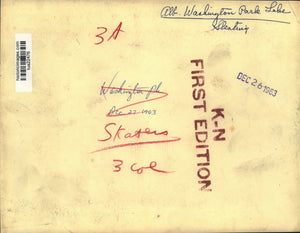 Washington Park Lake
Skating
3A
DEC 26 1963
Washington Pk
Dec 27-1963
Skaters
3 col
K-N
FIRST EDITION